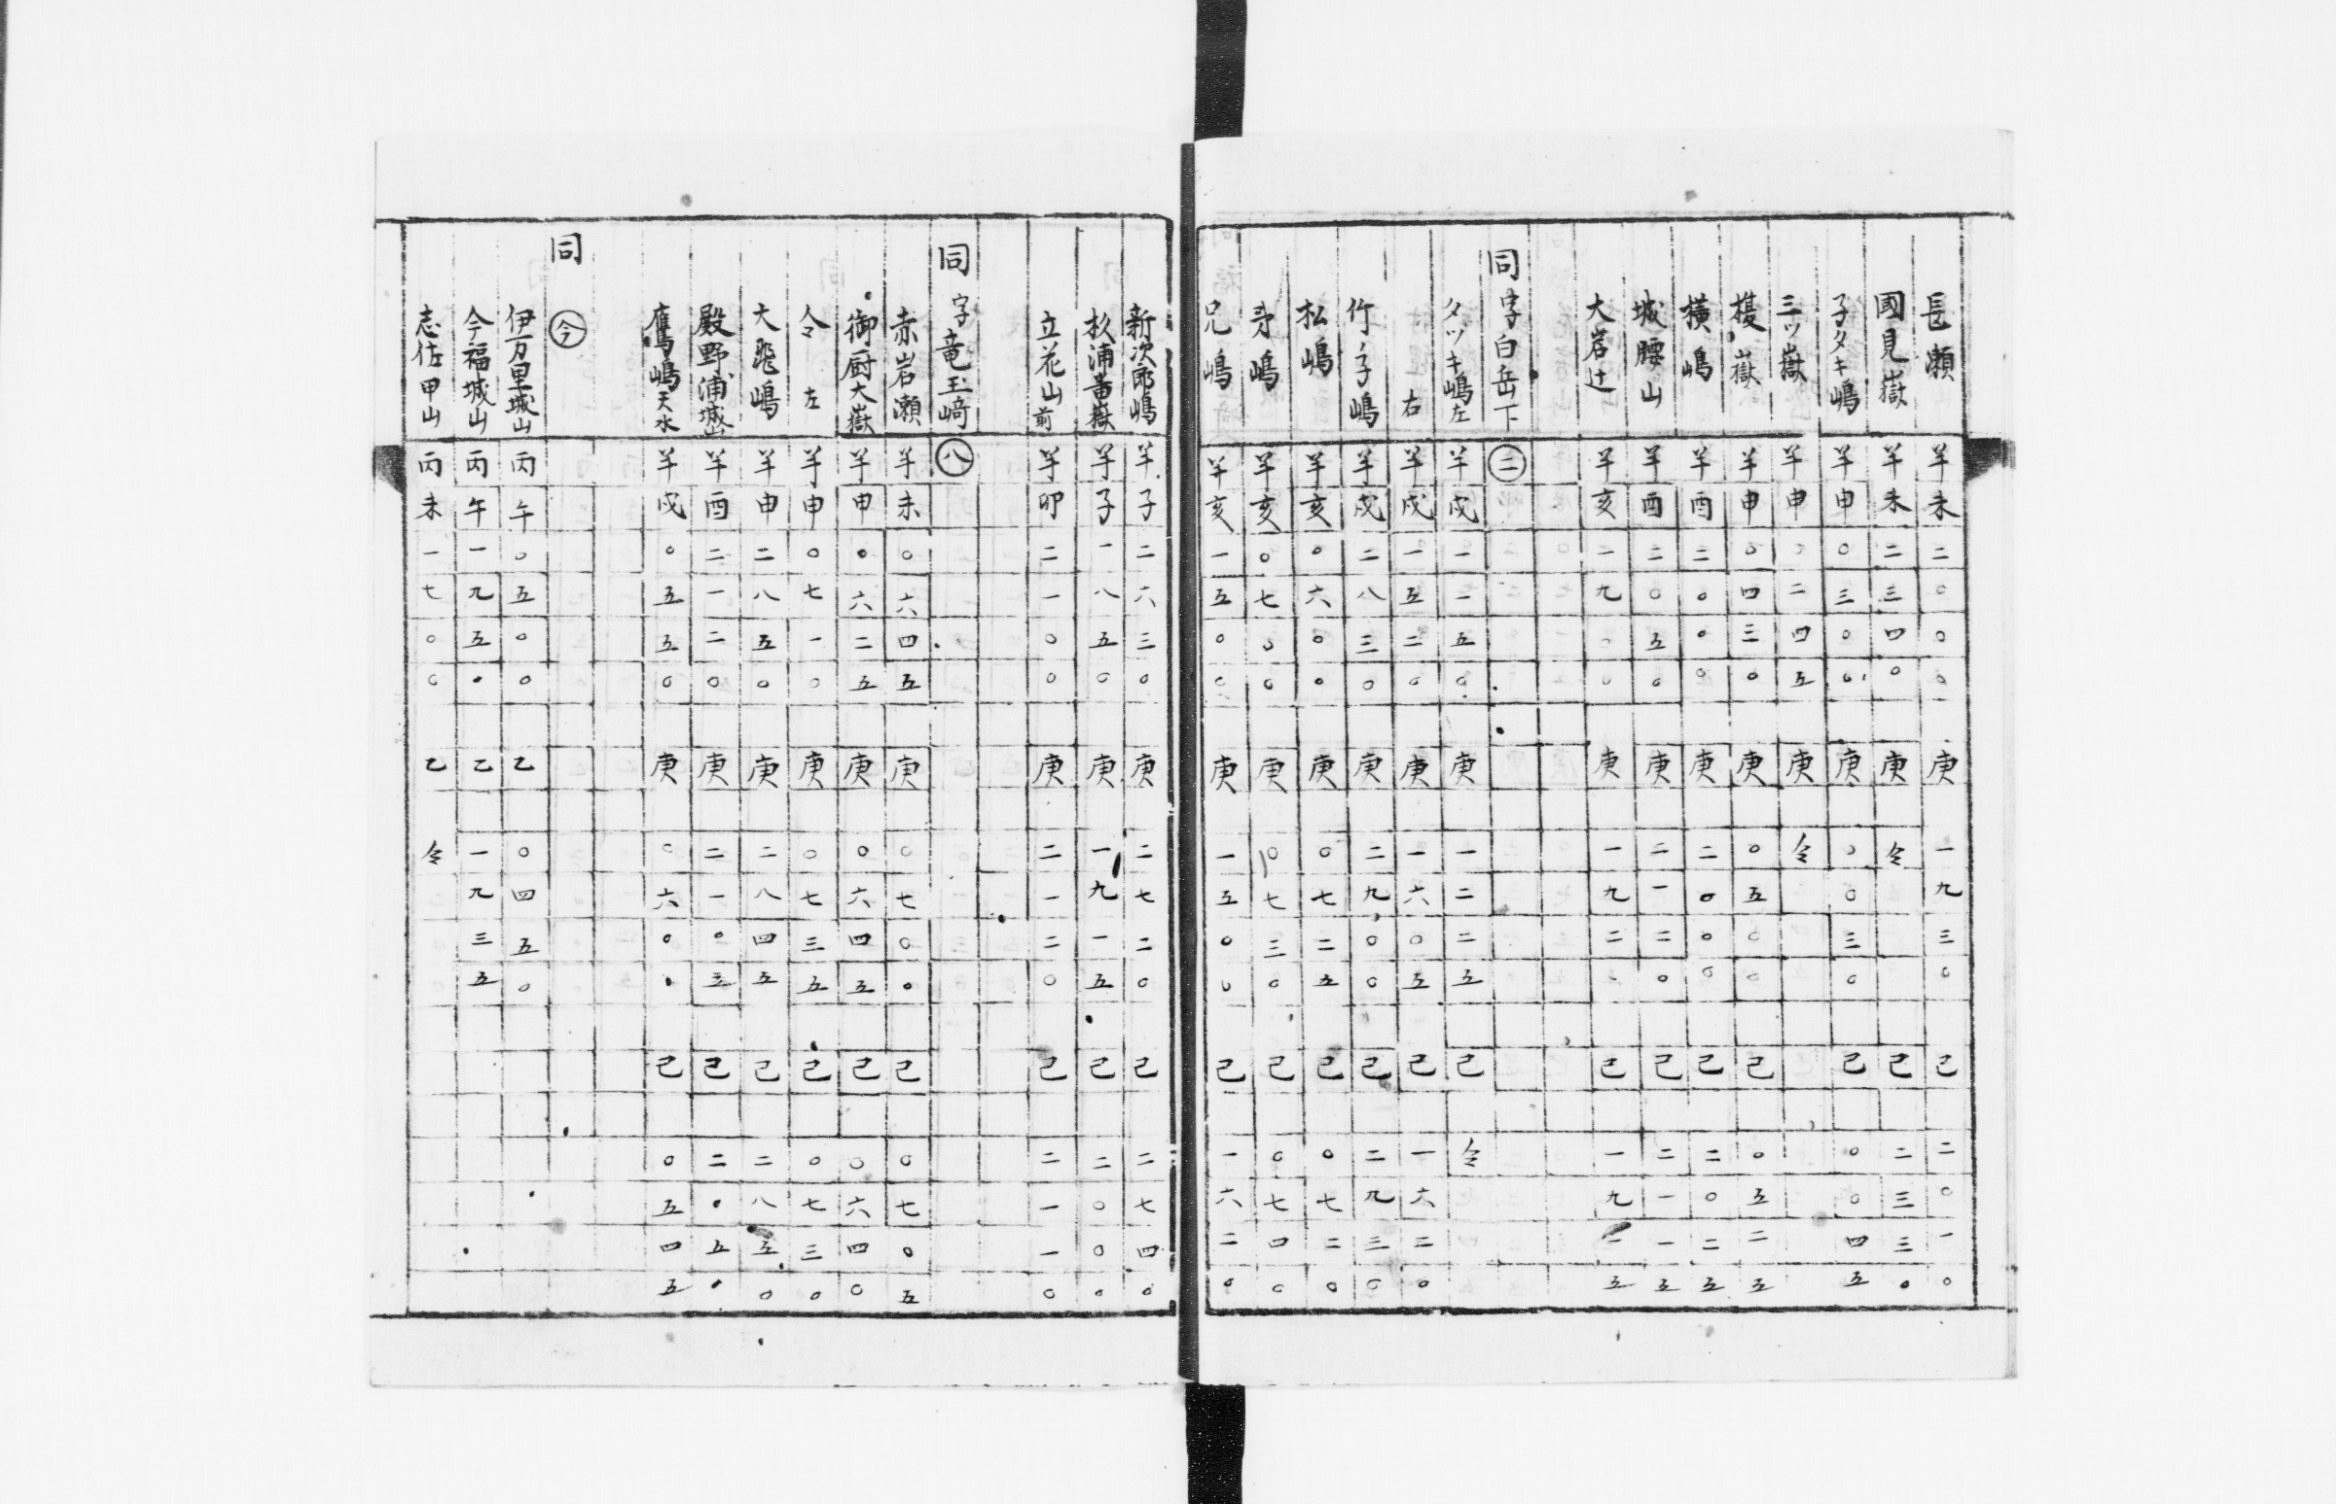 長瀬 羊未二〇〇〇 庚一九三〇 己二〇一〇
國見嶽 羊未二三四〇 庚仝 己二三三〇
子タキ嶋 羊申〇三〇〇 庚〇〇三〇 己〇〇四五
三ツ嶽 羊申〇二四五 庚仝
榎嶽 羊申〇四三〇 庚〇五〇〇 己〇五二五
横嶋 羊酉二〇〇〇 庚二〇〇〇 己二〇二五
城腰山 羊酉二〇五〇 庚二一二〇 己二一一五
大岩辻 羊亥一九〇〇 庚一九二〇 己一九二五
同 字白岳下 ㊁
タツキ嶋左 羊戌一一五〇 庚一二二五 己仝
右 羊戌一五二〇 庚一六〇五 己一六二〇
竹ノ子嶋 羊戌二八三〇 庚二九〇〇 己二九三〇
松嶋 羊亥〇六〇〇 庚〇七二五 己〇七二〇
弟嶋 羊亥〇七〇〇 庚〇七三〇 己〇七四〇
兄嶋 羊亥一五〇〇 庚一五〇〇 己一六二〇
新次郎嶋 羊子二六三〇 庚二七二〇 己二七四〇
杦浦番嶽 羊子一八五〇 庚一九一五 己二〇〇〇
立花山前 羊卯二一〇〇 庚二一二〇 己二一一〇
同 字竜王﨑 ㊇
赤岩瀬 羊未〇六四五 庚〇七〇〇 己〇七〇五
御厨大嶽 羊申〇六二五 庚〇六四五 己〇六四〇
仝 左 羊申〇七一〇 庚〇七三五 己〇七三〇
大飛嶋 羊申二八五〇 庚二八四五 己二八五〇
殿野浦城山 羊酉二一二〇 庚二一〇五 己二〇五〇
鷹嶋天水 羊戌〇五五〇 庚〇六〇〇 己〇五四五
同 今
伊万里城山 丙午〇五〇〇 乙〇四五〇
今福城山 丙午一九五〇 乙一九三五
志佐甲山 丙未一七〇〇 乙仝